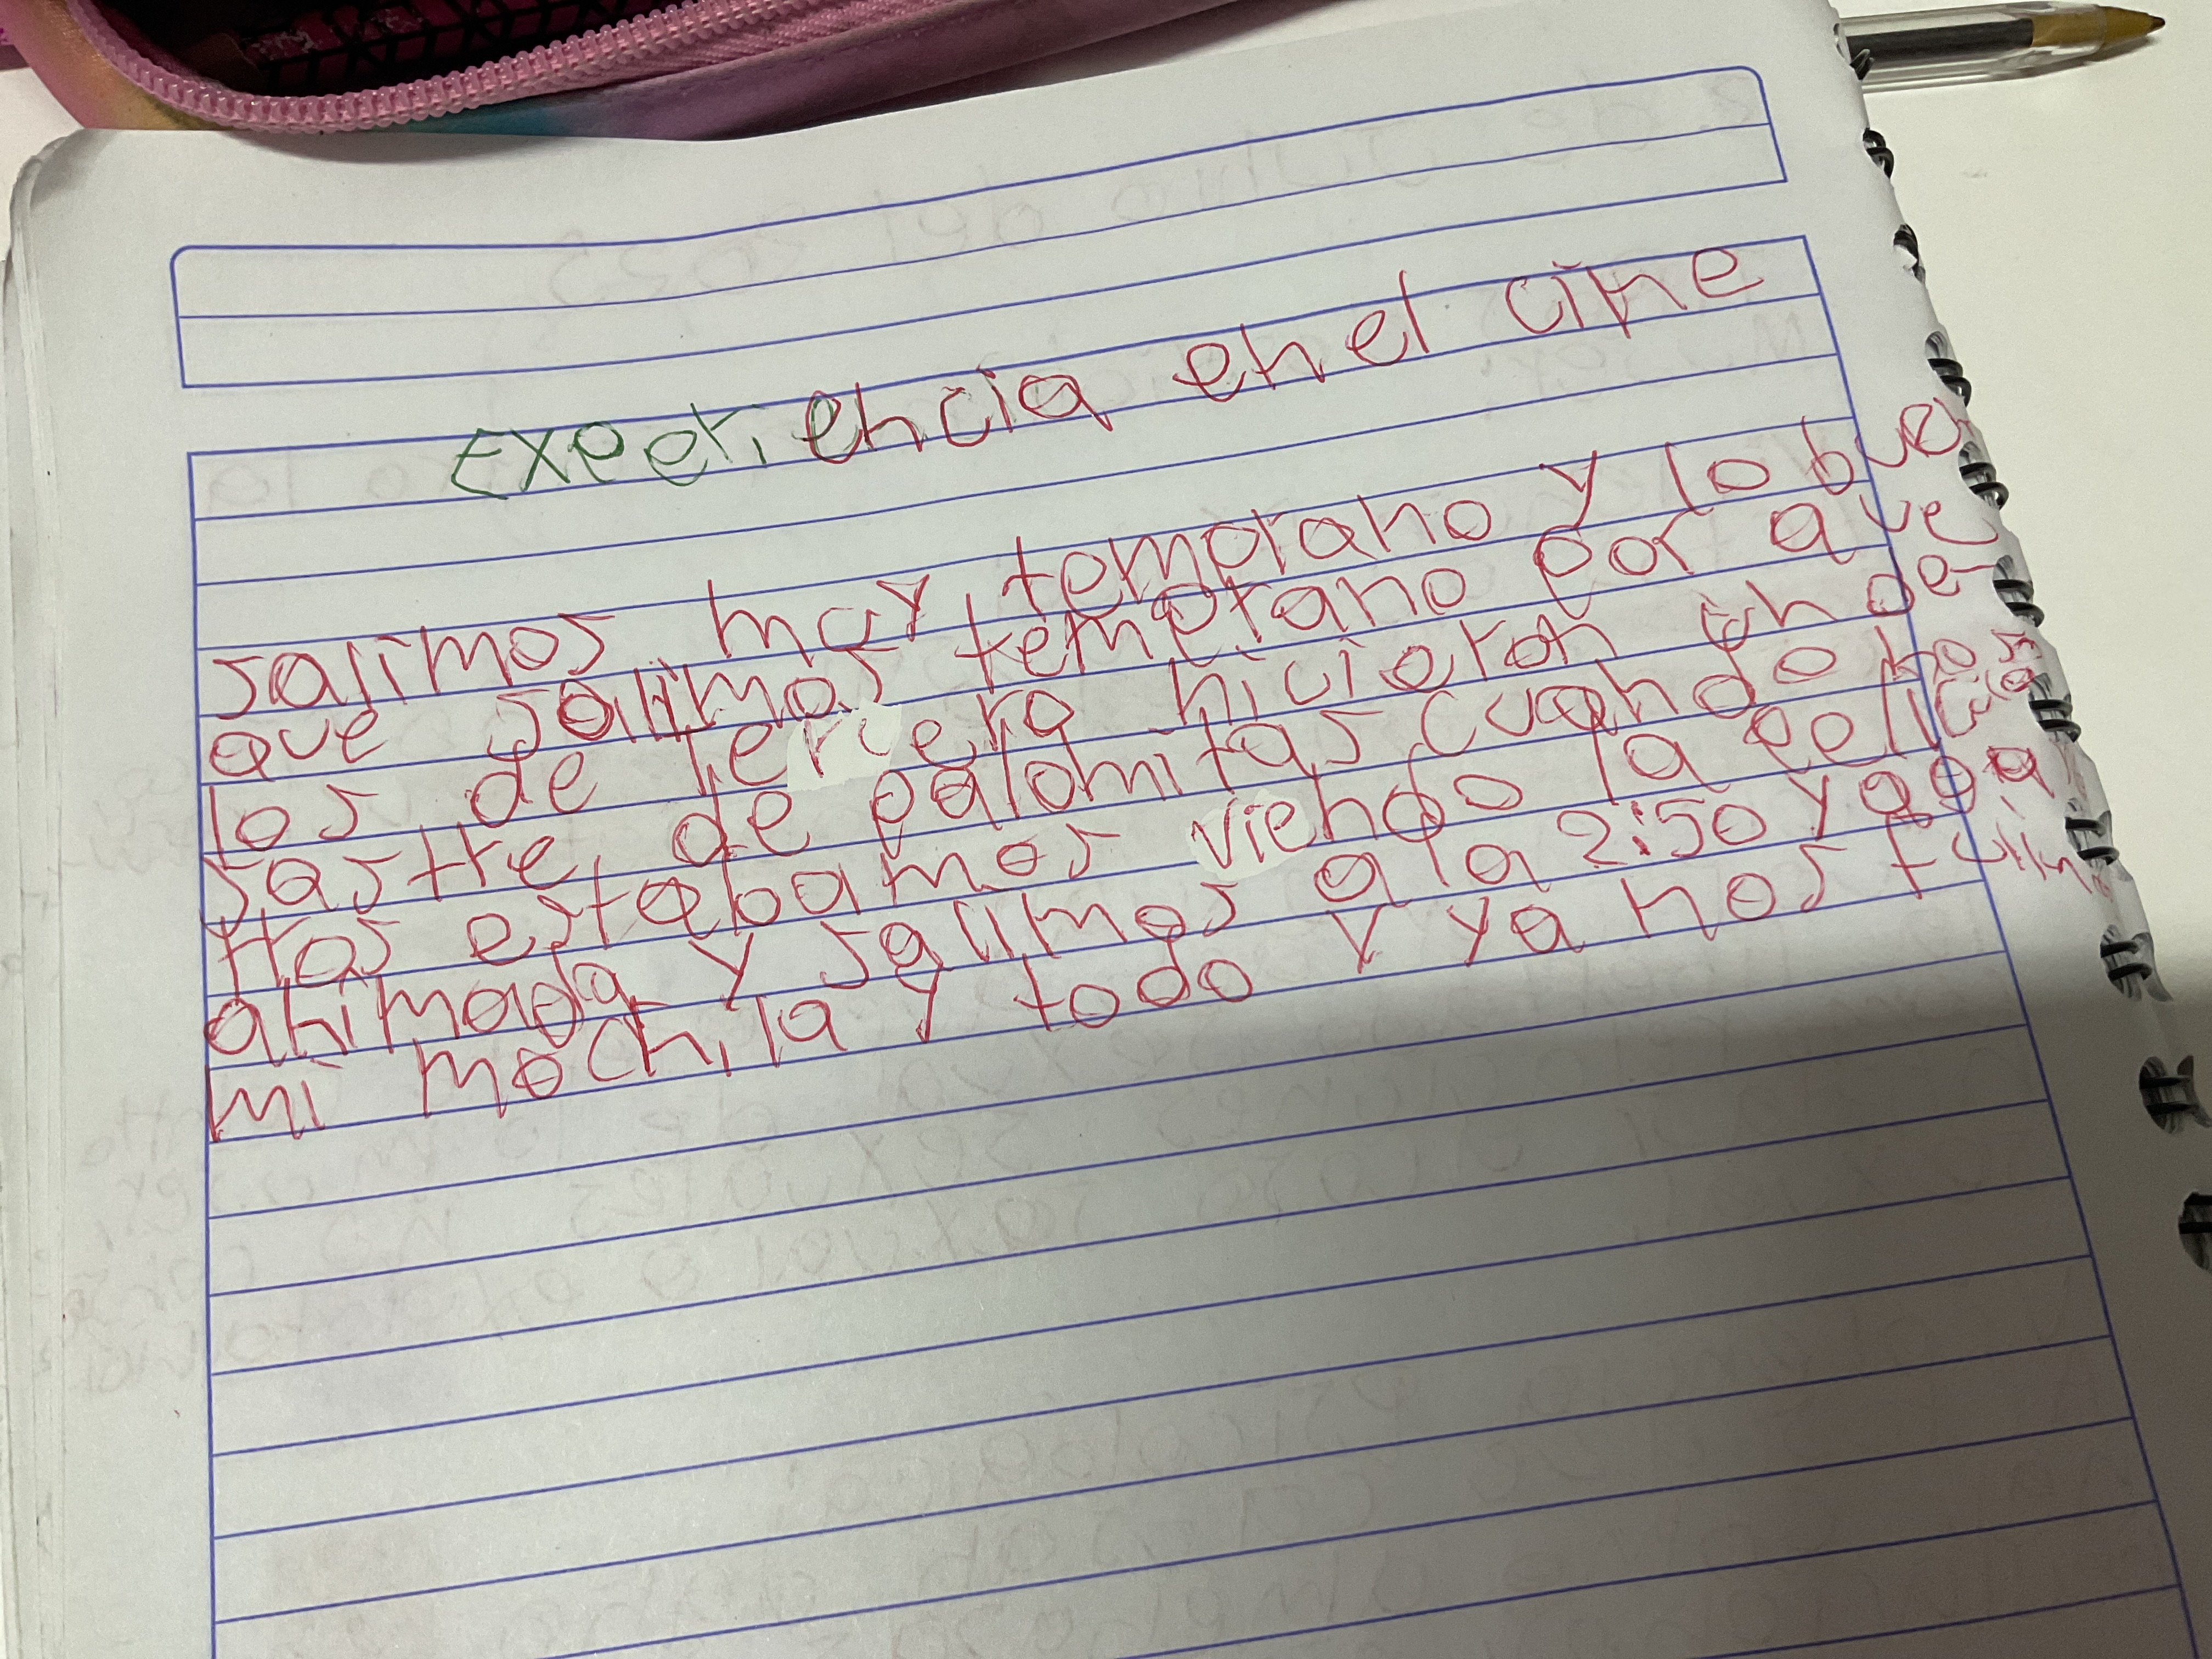 Experiencia en el cine
salimos muy temprano y lo bue
que salimos temprano por que
los de tercero hicieron un de-
sastre de palomitas cuando noso
tros estabamos viendo la pelicula
animada y salimos a la 2:50 y
mi mochila y todo y ya nos fuimos